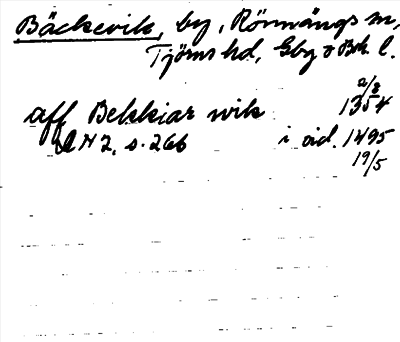 Bäckevik, by, Rönnängs sn,
Tjörns hd, Gbg o Boh. l.
2/8
aff Bekkiar wik 1354
DN 2, s. 266 i vid. 1495
19/5